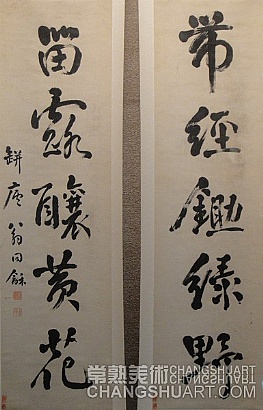 带经鋤绿野
留露釀黄花
缾廬翁同龢
常熟美術 CHANGSHUART
CHANGSHUART.COM